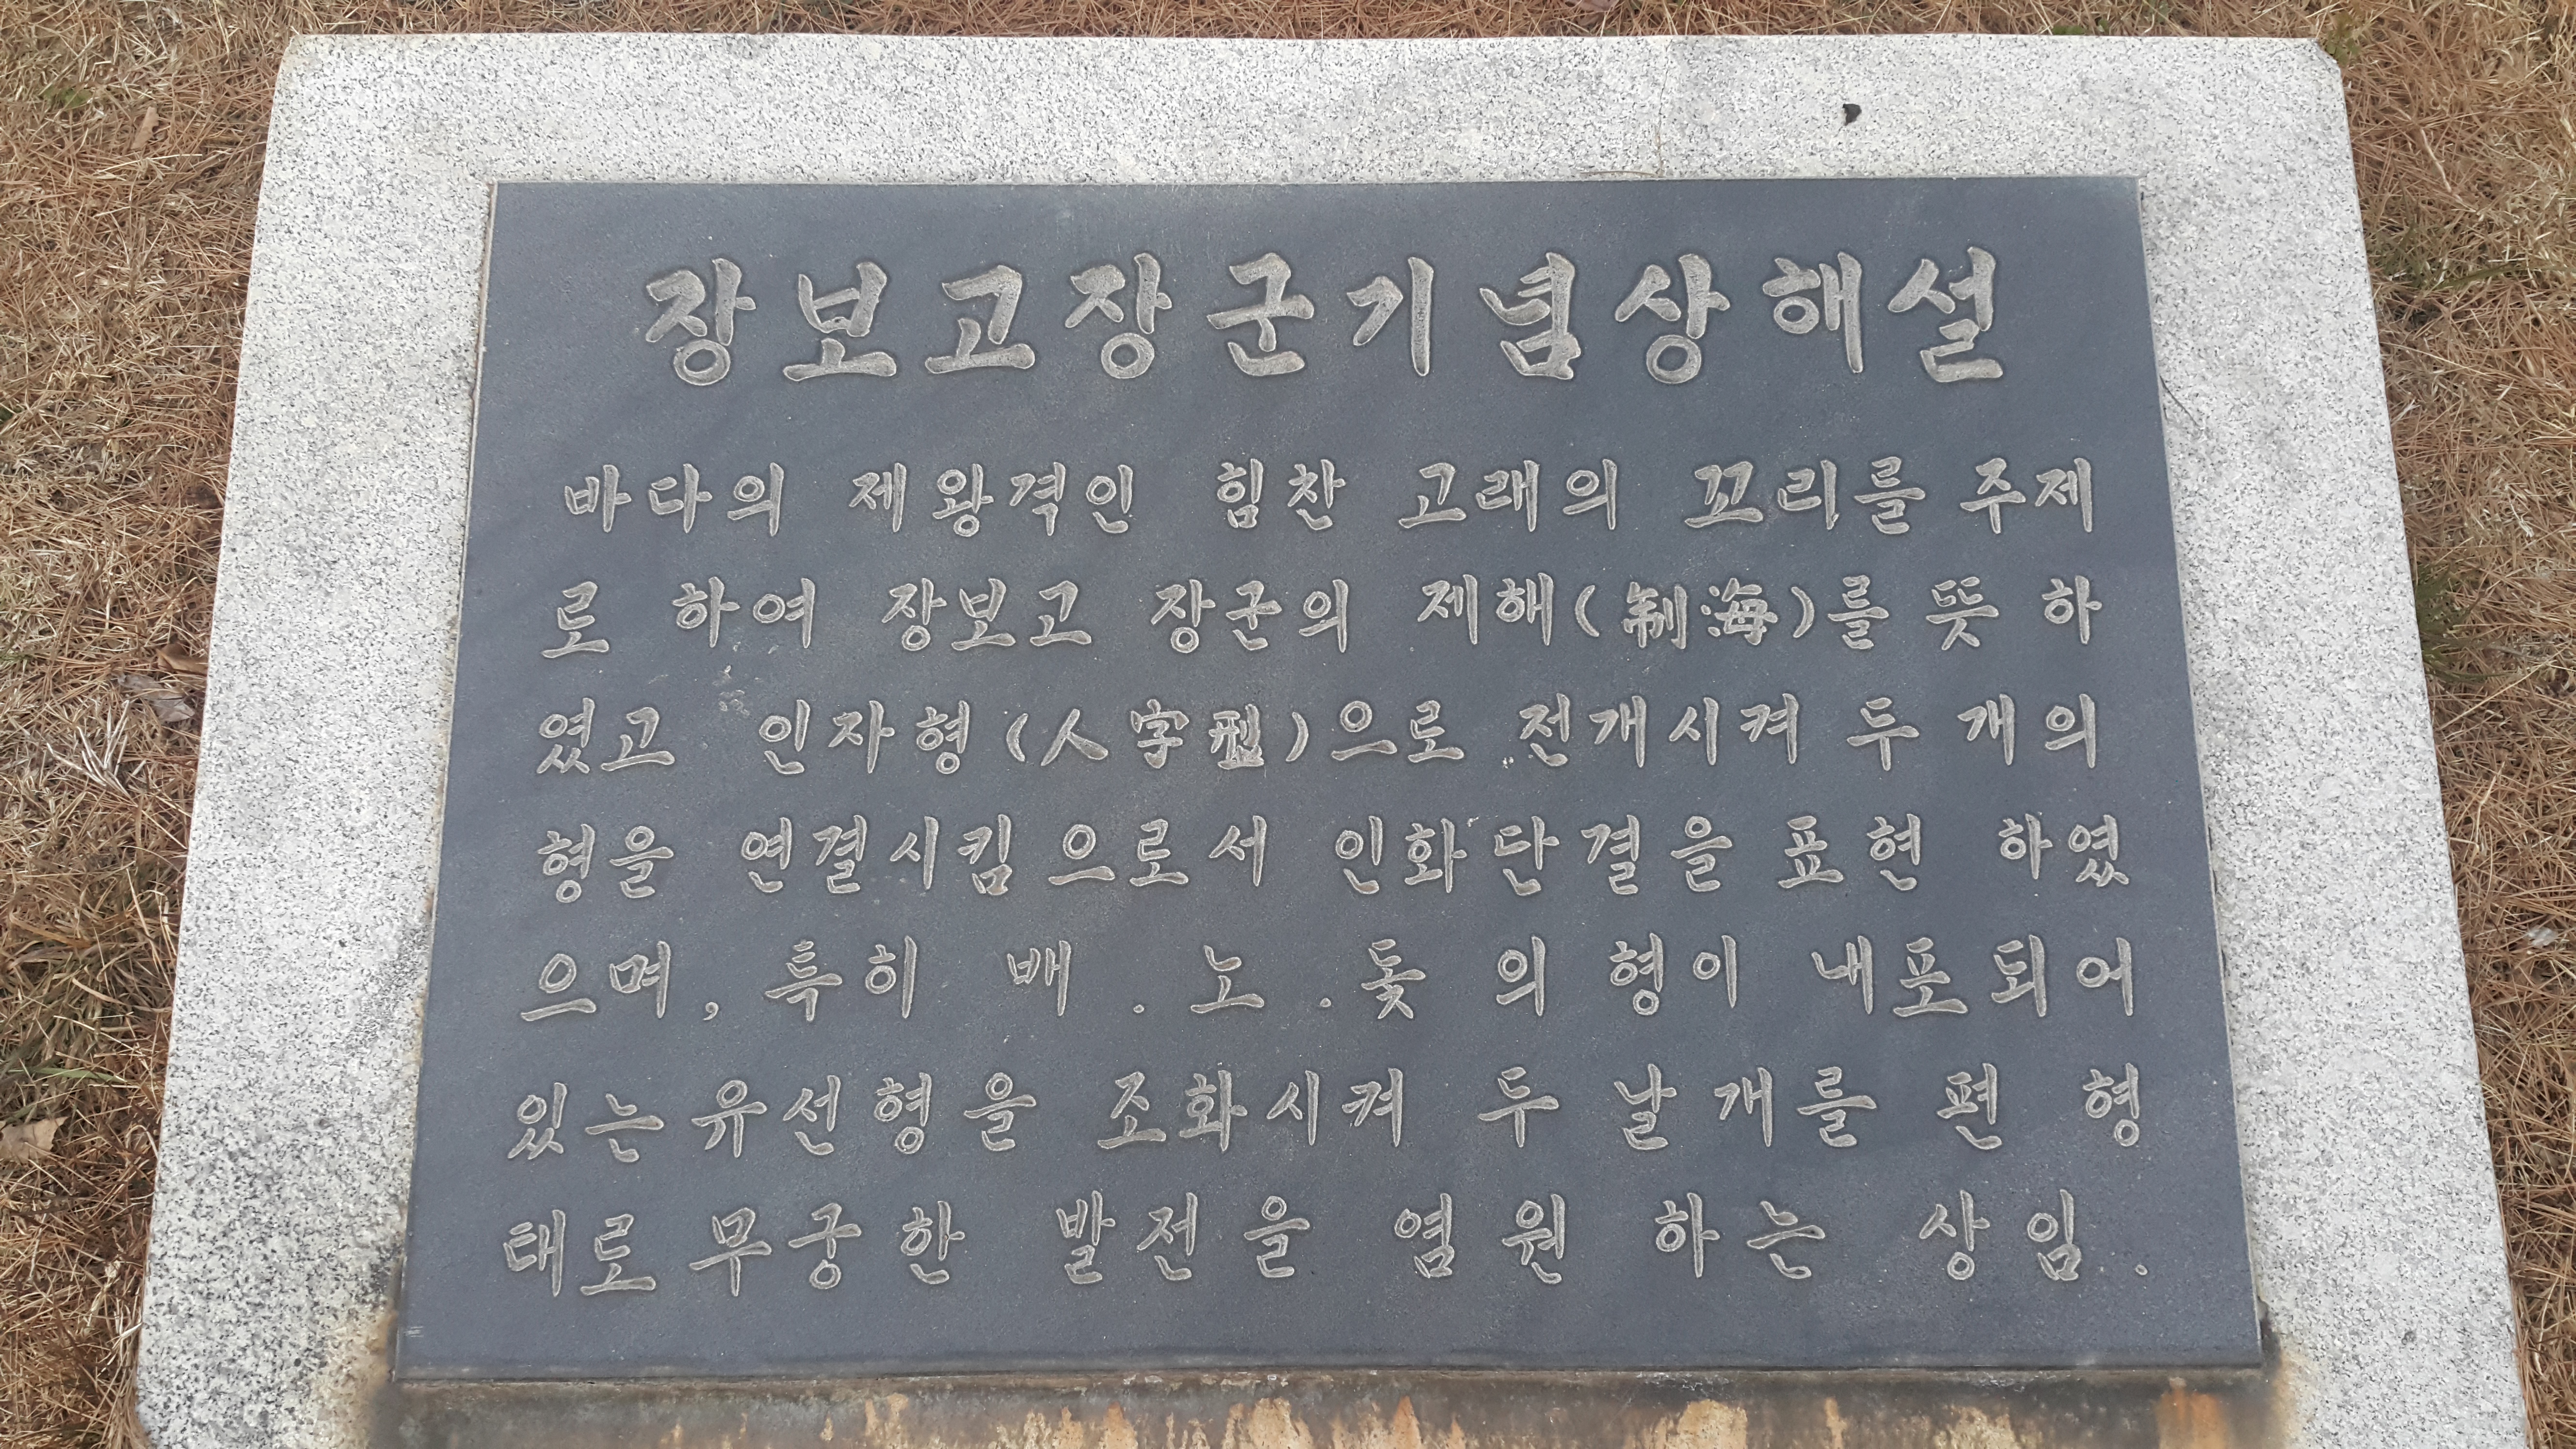 장보고장군기념상해설
바다의 제왕격인 힘찬 고래의 꼬리를 주제
로 하여 장보고 장군의 제해(制海)를 뜻 하
였고 인자형(人字型)으로 전개시켜 두 개의
형을 연결시킴으로서 인화단결을 표현 하였
으며, 특히 배 . 노 . 돛 의 형이 내포되어
있는 유선형을 조화시켜 두 날개를 편 형
태로 무궁한 발전을 염원 하는 상임.